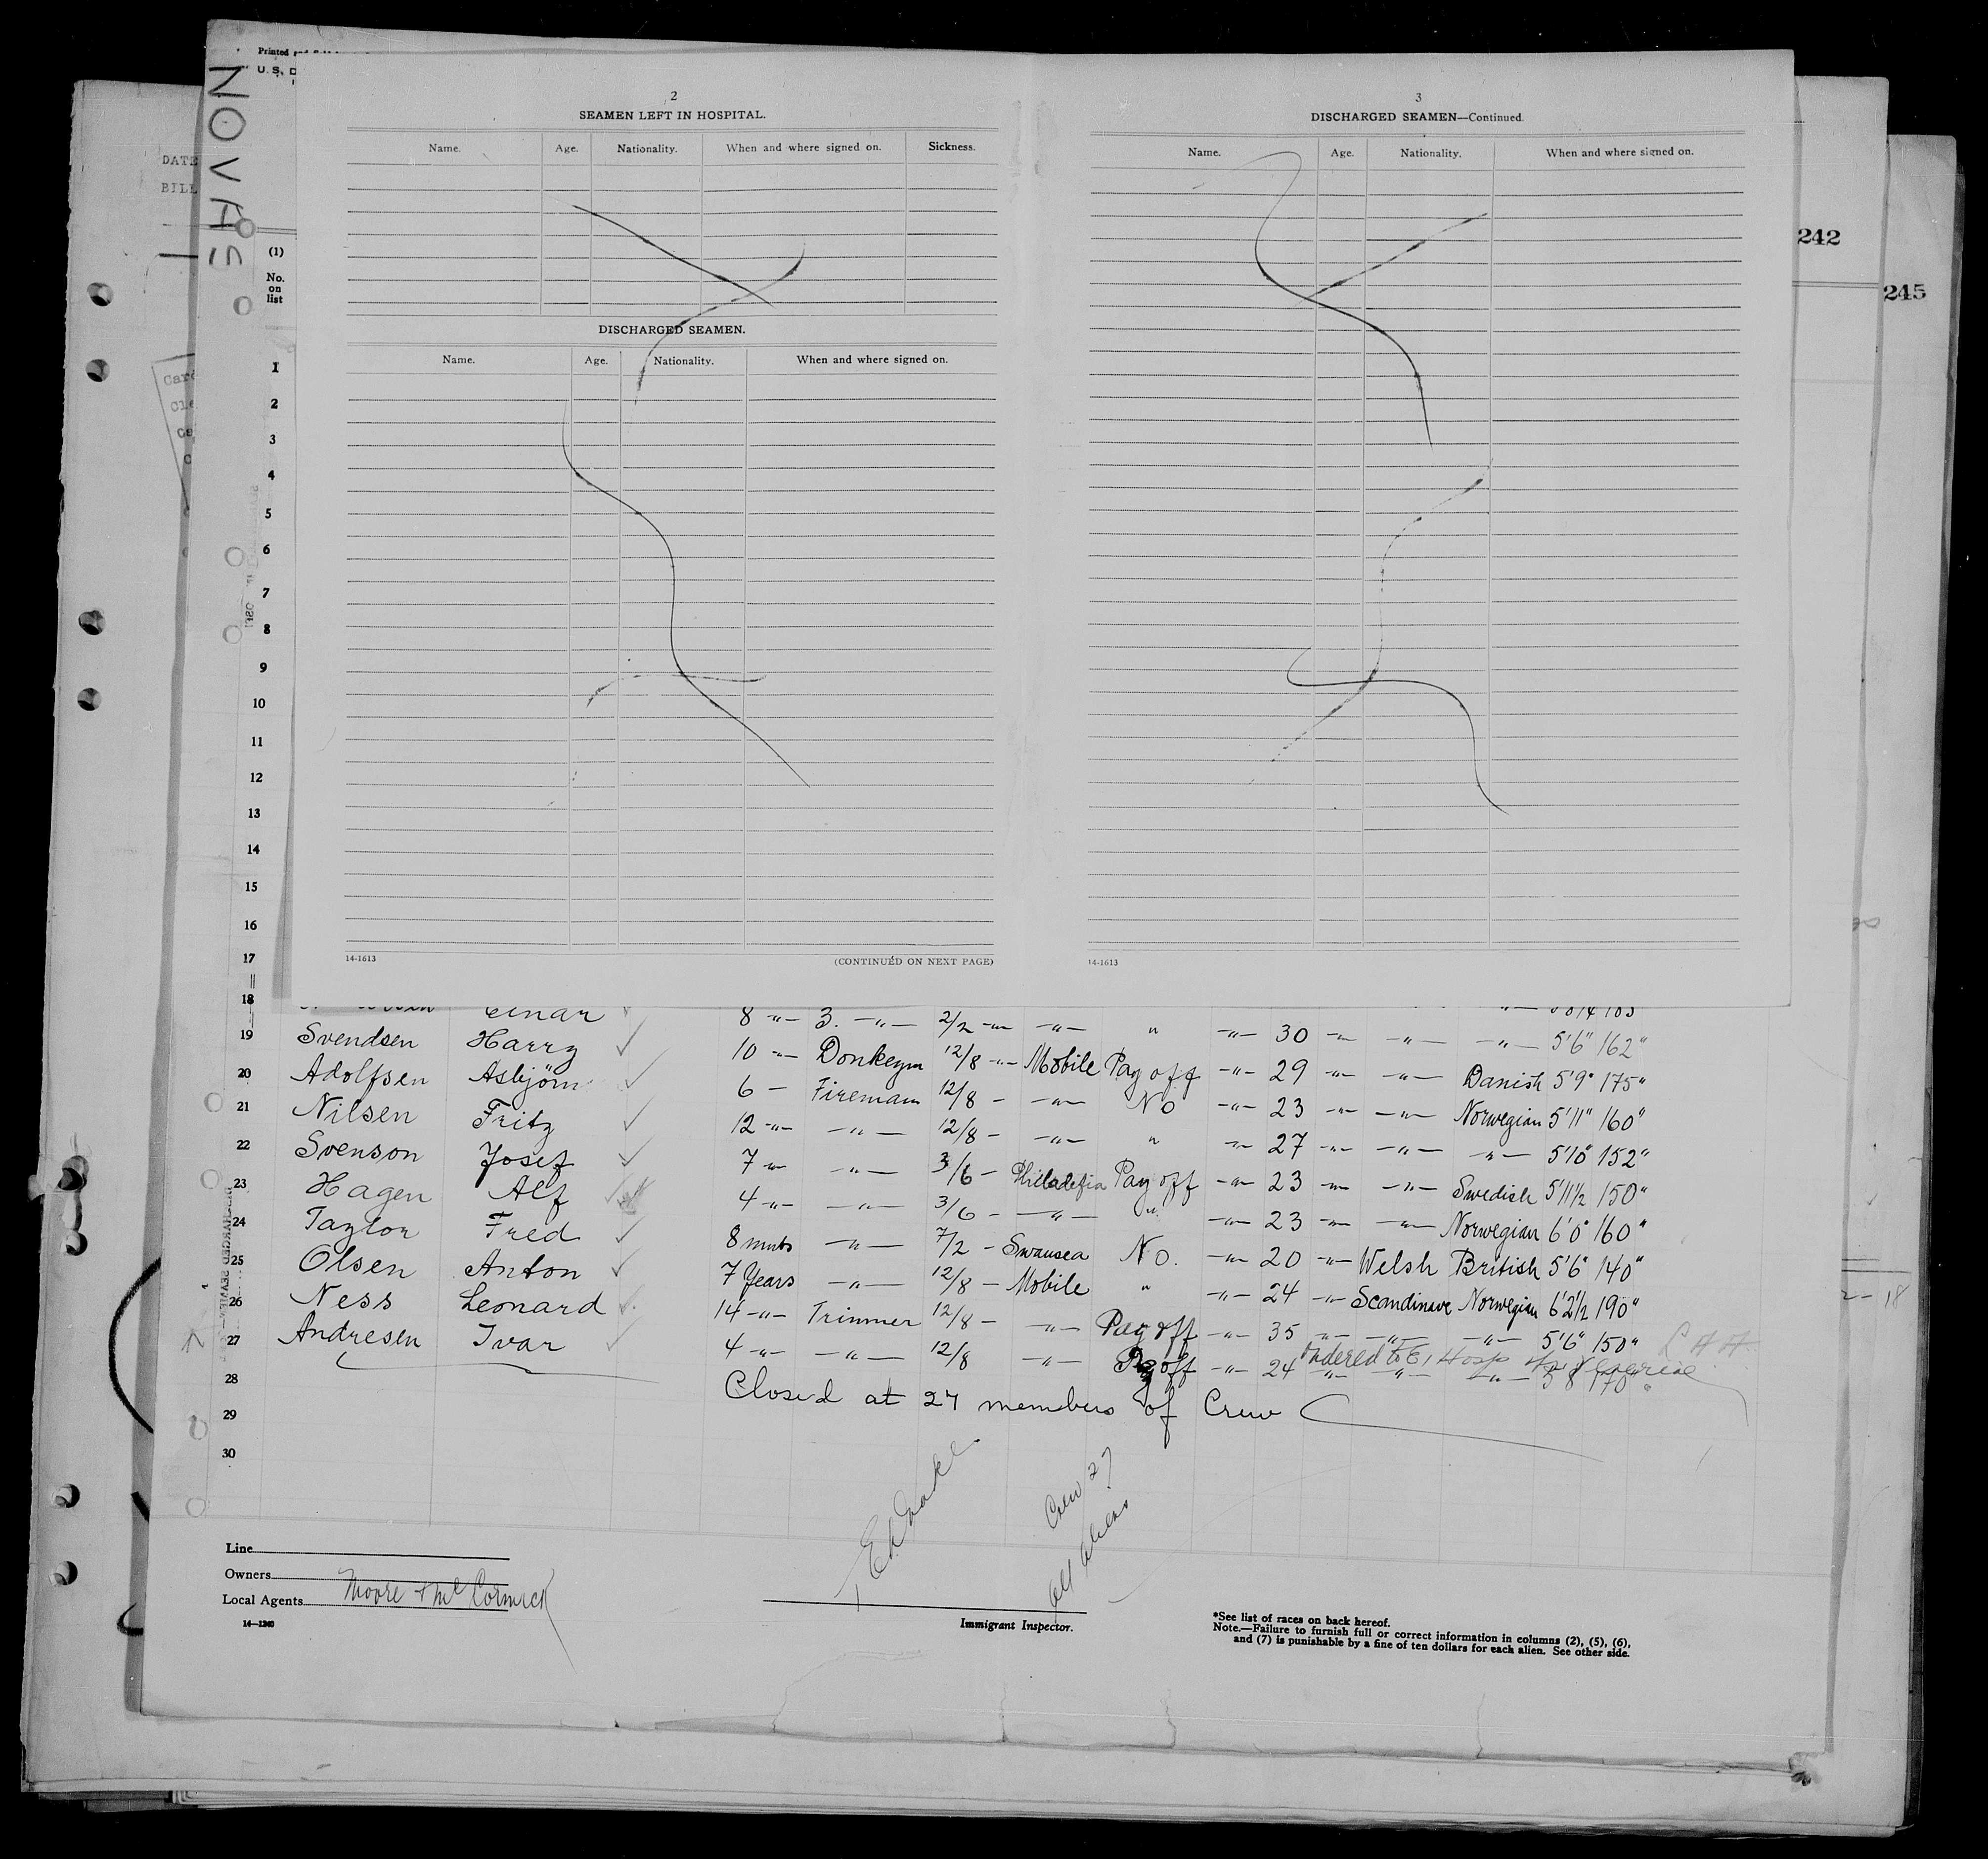 Printed
U. S. D
NOVAS
DATE
BILL
2
SEAMEN LEFT IN HOSPITAL.
Name. Age. Nationality. When and where signed on. Sickness.
DISCHARGED SEAMEN.
Name. Age. Nationality. When and where signed on.
14-1613 (CONTINUED ON NEXT PAGE)
3
DISCHARGED SEAMEN—Continued.
Name. Age. Nationality. When and where signed on.
14-1613
242
245
(1)
No.
on
list
1
2
3
4
5
6
7
8
9
10
11
12
13
14
15
16
17
18 Einar 8 -"- 3. -"- 2/2 -"- -"- " -"- 30 -"- -"- -"- 5'6" 162"
19 Svendsen Harry 10 -"- Donkeym 12/8 -"- Mobile Pay off -"- 29 -"- -"- Danish 5'9" 175"
20 Adolfsen Asbjörn 6 - Fireman 12/8 - -"- No -"- 23 -"- -"- Norwegian 5'11" 160"
21 Nilsen Fritz 12 -"- -"- 12/8 - -"- " -"- 27 -"- -"- -"- 5'10" 152"
22 Svenson Josef 7 -"- -"- 3/6 - Philadefia Pay off -"- 23 -"- -"- Swedish 5'11½ 150"
23 Hagen Alf 4 -"- -"- 3/6 - -"- " -"- 23 -"- -"- Norwegian 6'0" 160"
24 Taylor Fred 8 mnts -"- 7/2 - Swansea No. -"- 20 -"- Welsh British 5'6" 140"
25 Olsen Anton 7 Years -"- 12/8 - Mobile " -"- 24 -"- Scandinave Norwegian 6'2½ 190"
26 Ness Leonard 14 -"- Trimmer 12/8 - -"- Pay off -"- 35 -"- -"- -"- 5'6" 150"
Ordered to E I Hosp
27 Andresen Ivar 4 -"- -"- 12/8 -"- Pay off -"- 24 -"- -"- -"- 5'8" 170"
28 Closed at 27 members of Crew
29
30
Crew 27
all aliens
Line
Owners
Local Agents Moore & McCormick
14—1240
Immigrant Inspector.
*See list of races on back hereof.
Note.—Failure to furnish full or correct information in columns (2), (5), (6),
and (7) is punishable by a fine of ten dollars for each alien. See other side.